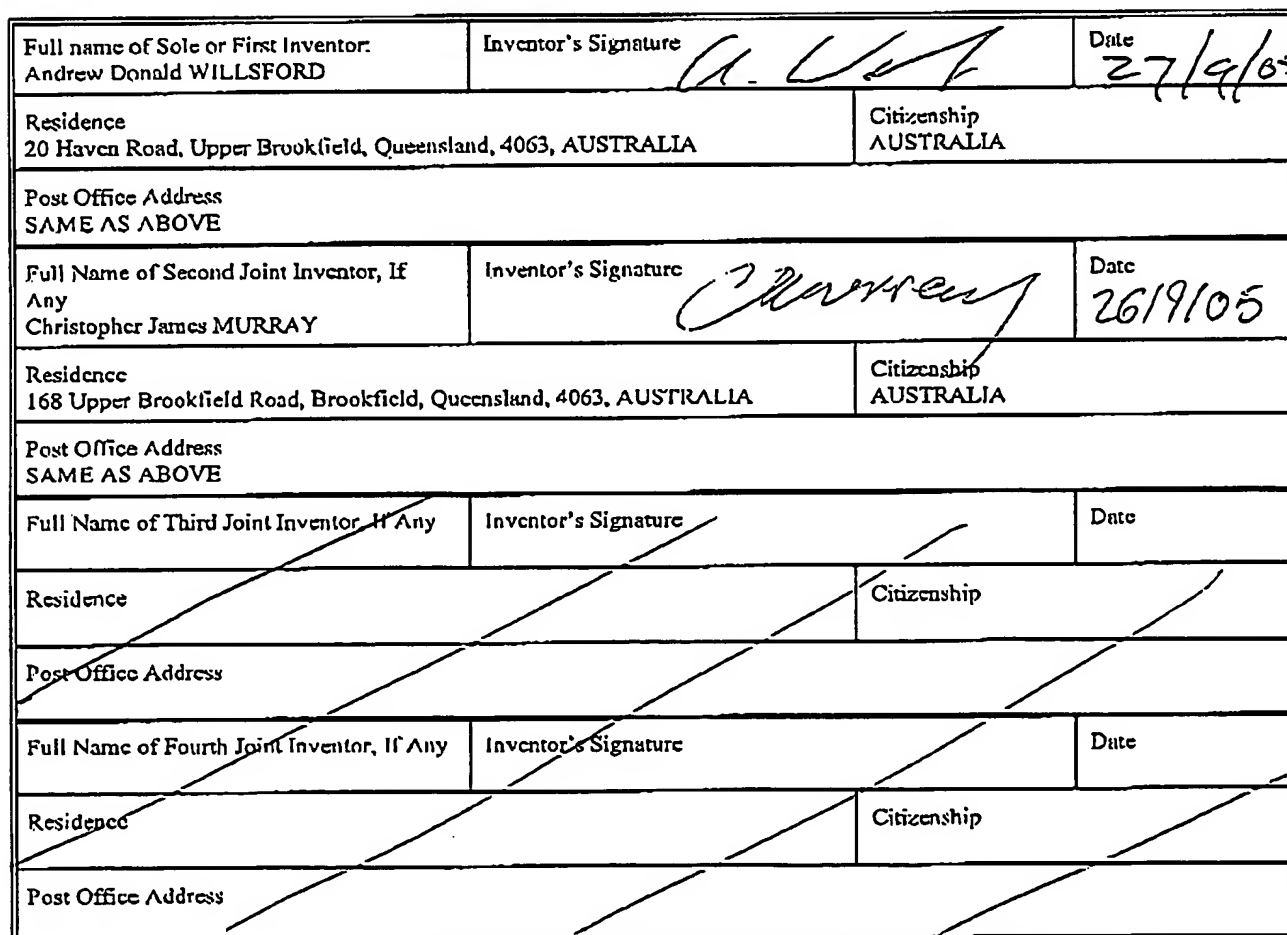 Full name of Sole or First Inventor:
Andrew Donald WILLSFORD
Inventor's Signature
Date
27/9/05
Residence
20 Haven Road, Upper Brookfield, Queensland, 4063, AUSTRALIA
Citizenship
AUSTRALIA
Post Office Address
SAME AS ABOVE
Full Name of Second Joint Inventor, If
Any
Christopher James MURRAY
Inventor's Signature
CMurray
Date
26/9/05
Residence
168 Upper Brookfield Road, Brookfield, Queensland, 4063, AUSTRALIA
Citizenship
AUSTRALIA
Post Office Address
SAME AS ABOVE
Full Name of Third Joint Inventor, If Any
Inventor's Signature
Date
Residence
Citizenship
Post Office Address
Full Name of Fourth Joint Inventor, If Any
Inventor's Signature
Date
Residence
Citizenship
Post Office Address